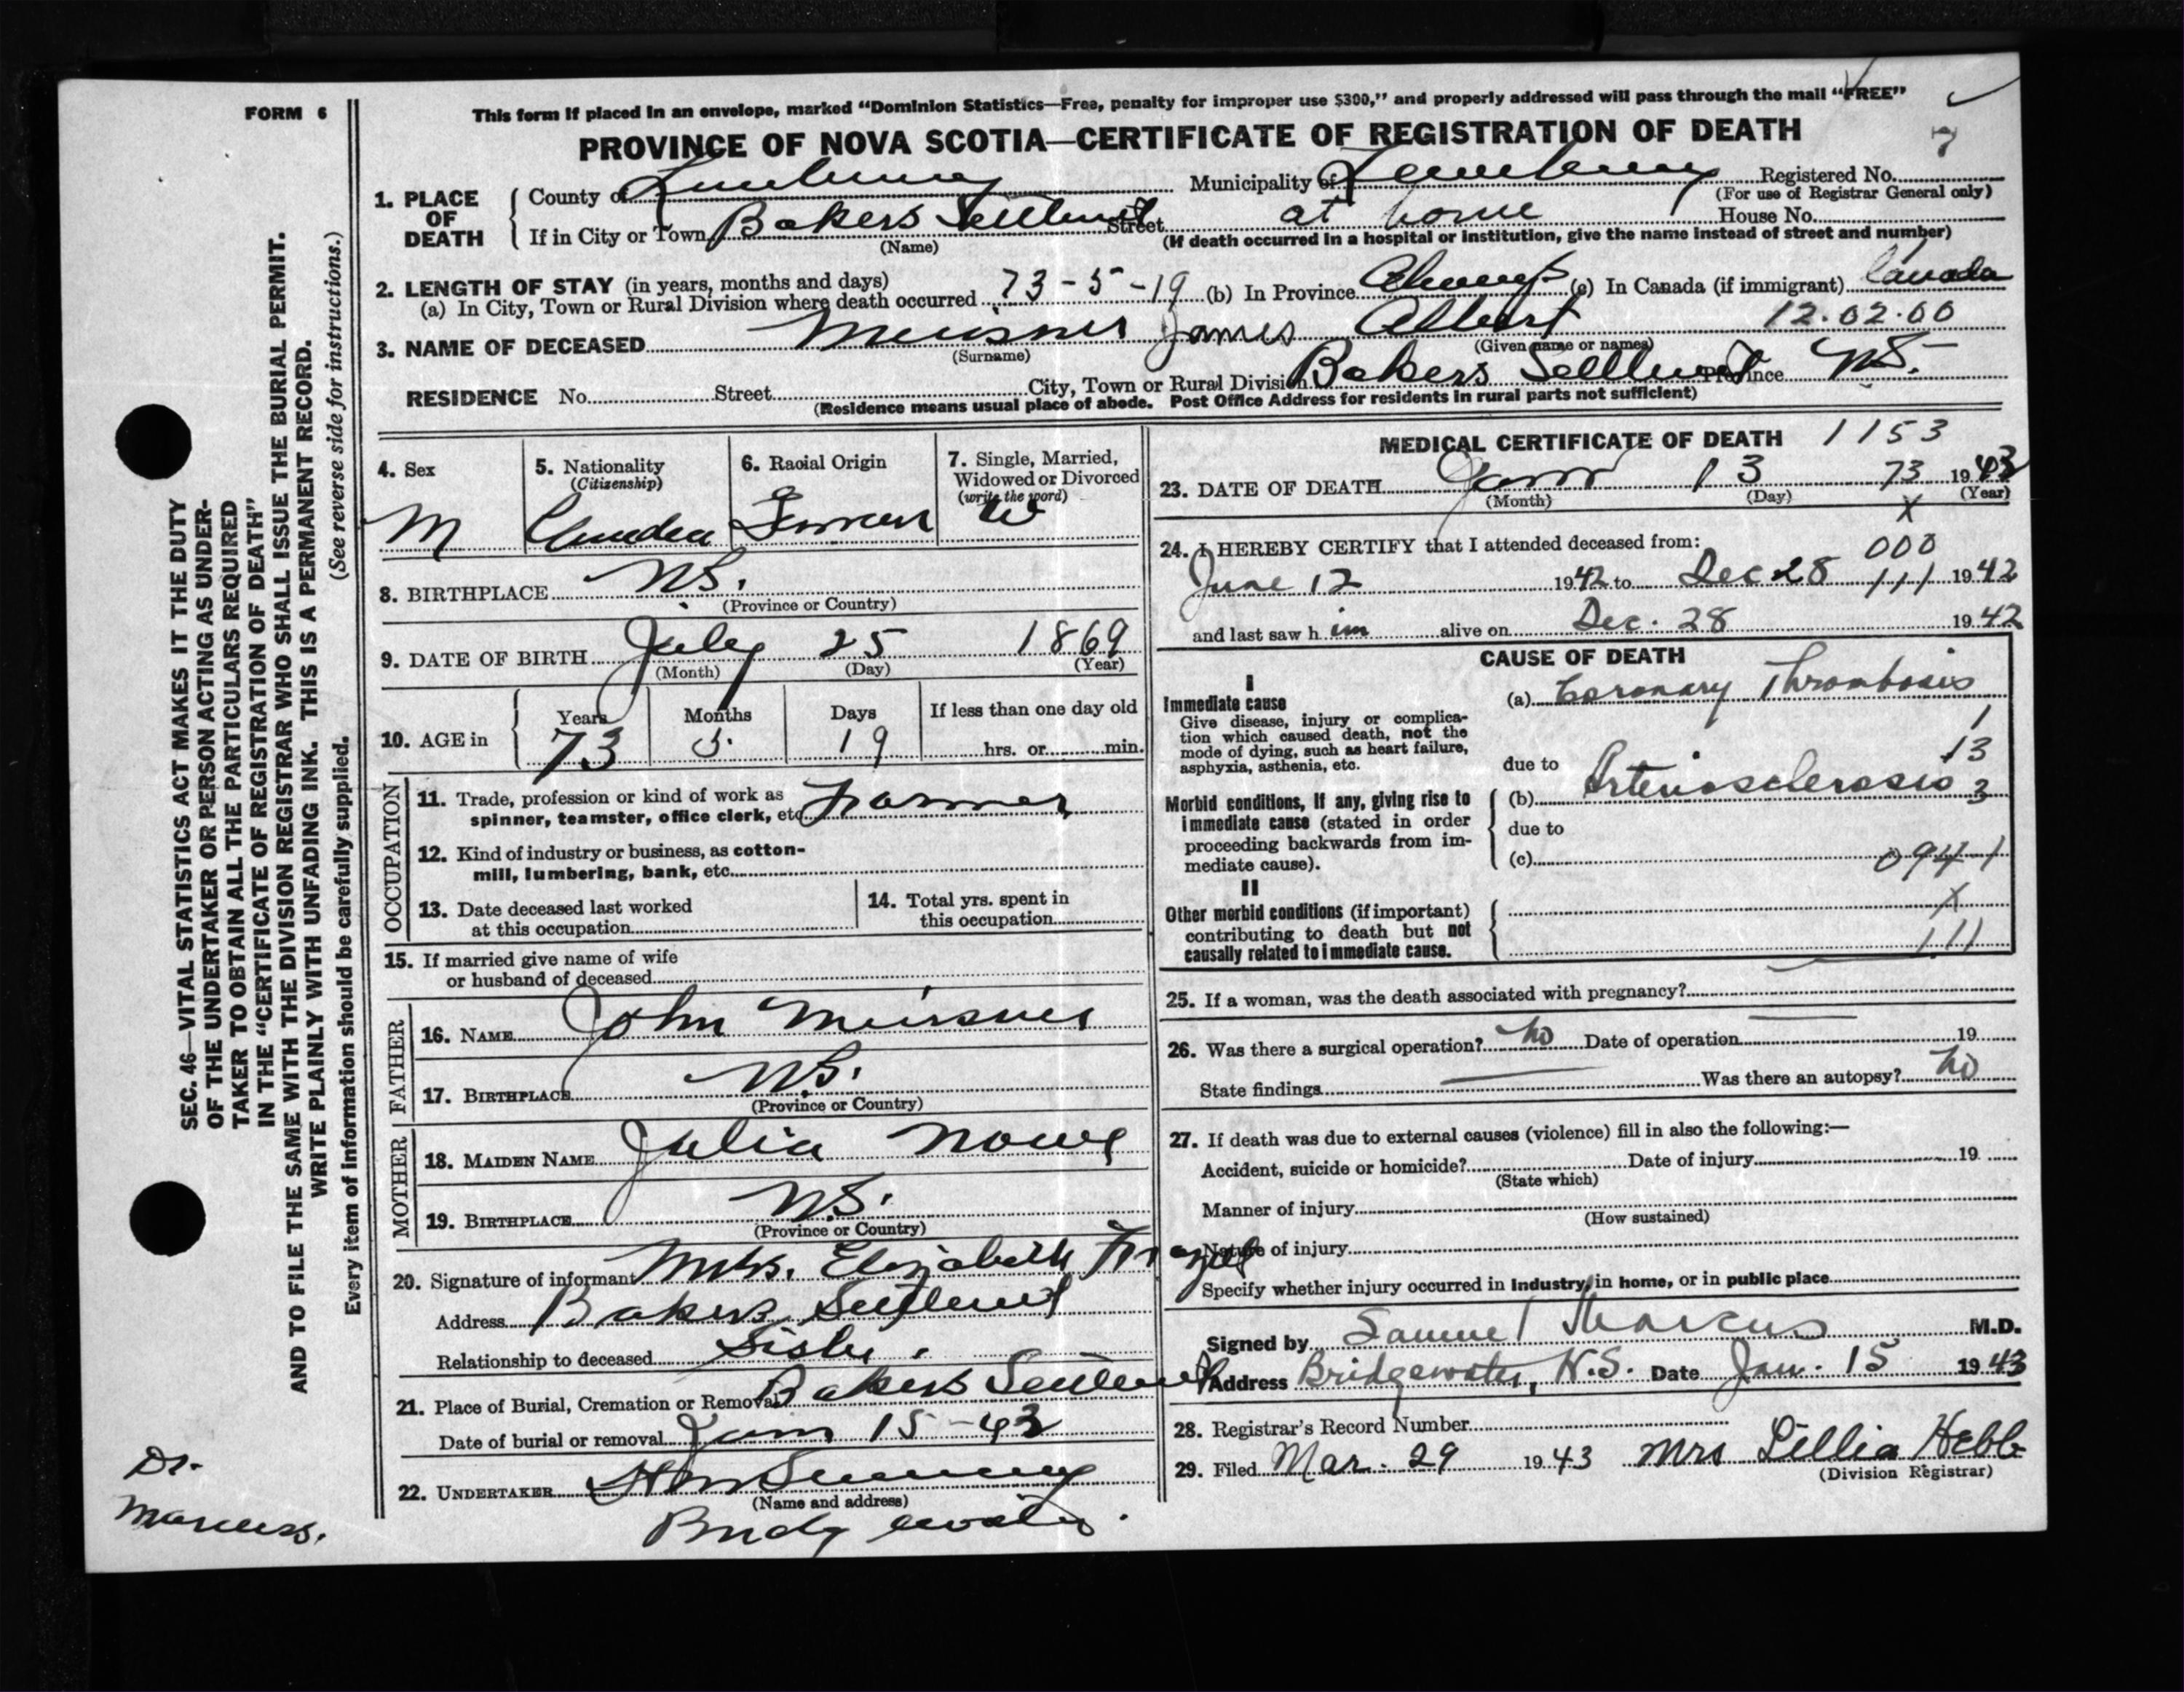 FORM 6
This form if placed in an envelope, marked “Dominion Statistics—Free, penalty for improper use $300,” and properly addressed will pass through the mail “FREE”
PROVINCE OF NOVA SCOTIA—CERTIFICATE OF REGISTRATION OF DEATH
7
1. PLACE OF DEATH
County of Lunenburg Municipality of Lunenburg Registered No.
(For use of Registrar General only)
If in City or Town Bakers Settlement Street at home House No.
(Name) (If death occurred in a hospital or institution, give the name instead of street and number)
2. LENGTH OF STAY (in years, months and days)
(a) In City, Town or Rural Division where death occurred 73-5-19 (b) In Province Always (c) In Canada (if immigrant) Canada
12.02.00
3. NAME OF DECEASED Meisner James Albert
(Surname) (Given name or names)
RESIDENCE No. Street City, Town or Rural Division Bakers Settlement Province N.S.
(Residence means usual place of abode. Post Office Address for residents in rural parts not sufficient)
4. Sex
M
5. Nationality
(Citizenship)
6. Racial Origin
German
7. Single, Married, Widowed or Divorced
(write the word)
W
8. BIRTHPLACE N.S.
(Province or Country)
9. DATE OF BIRTH July 25 1869
(Month) (Day) (Year)
10. AGE in
Years Months Days If less than one day old
73 5 19 hrs. or min.
OCCUPATION
11. Trade, profession or kind of work as
spinner, teamster, office clerk, etc. Farmer
12. Kind of industry or business, as cotton-
mill, lumbering, bank, etc.
13. Date deceased last worked
at this occupation
14. Total yrs. spent in
this occupation
15. If married give name of wife
or husband of deceased
FATHER
16. NAME John Meisner
17. BIRTHPLACE N.S.
(Province or Country)
MOTHER
18. MAIDEN NAME Julia Nowe
19. BIRTHPLACE N.S.
(Province or Country)
20. Signature of informant Mrs. Elizabeth
Address Bakers Settlement
Relationship to deceased Sister.
21. Place of Burial, Cremation or Removal Bakers Settlement
Date of burial or removal Jan 15-43
22. UNDERTAKER
(Name and address)
Bridgewater.
MEDICAL CERTIFICATE OF DEATH 1153
23. DATE OF DEATH Jan 13 73 1943
(Month) (Day) (Year)
X
24. I HEREBY CERTIFY that I attended deceased from:
000
June 12 1942 to Dec 28 111 1942
and last saw him alive on Dec. 28 1942
CAUSE OF DEATH
I
Immediate cause
Give disease, injury or complica-
tion which caused death, not the
mode of dying, such as heart failure,
asphyxia, asthenia, etc.
(a) Coronary Thrombosis
1
13
due to
Morbid conditions, if any, giving rise to
immediate cause (stated in order
proceeding backwards from im-
mediate cause).
(b) Arteriosclerosis 3
due to
(c) 094-1
II
Other morbid conditions (if important)
contributing to death but not
causally related to immediate cause.
X
111
25. If a woman, was the death associated with pregnancy?
26. Was there a surgical operation? no Date of operation 19
State findings Was there an autopsy? no
27. If death was due to external causes (violence) fill in also the following:—
Accident, suicide or homicide? Date of injury 19
(State which)
Manner of injury
(How sustained)
Nature of injury
Specify whether injury occurred in industry, in home, or in public place
Signed by Samuel Marcus M.D.
Address Bridgewater, N.S. Date Jan. 15 1943
28. Registrar’s Record Number
29. Filed Mar. 29 1943 Mrs Lillia Hebb
(Division Registrar)
SEC. 46—VITAL STATISTICS ACT MAKES IT THE DUTY
OF THE UNDERTAKER OR PERSON ACTING AS UNDER-
TAKER TO OBTAIN ALL THE PARTICULARS REQUIRED
IN THE “CERTIFICATE OF REGISTRATION OF DEATH”
AND TO FILE THE SAME WITH THE DIVISION REGISTRAR WHO SHALL ISSUE THE BURIAL PERMIT.
WRITE PLAINLY WITH UNFADING INK. THIS IS A PERMANENT RECORD.
(See reverse side for instructions.)
Every item of information should be carefully supplied.
Dr.
Marcuss.